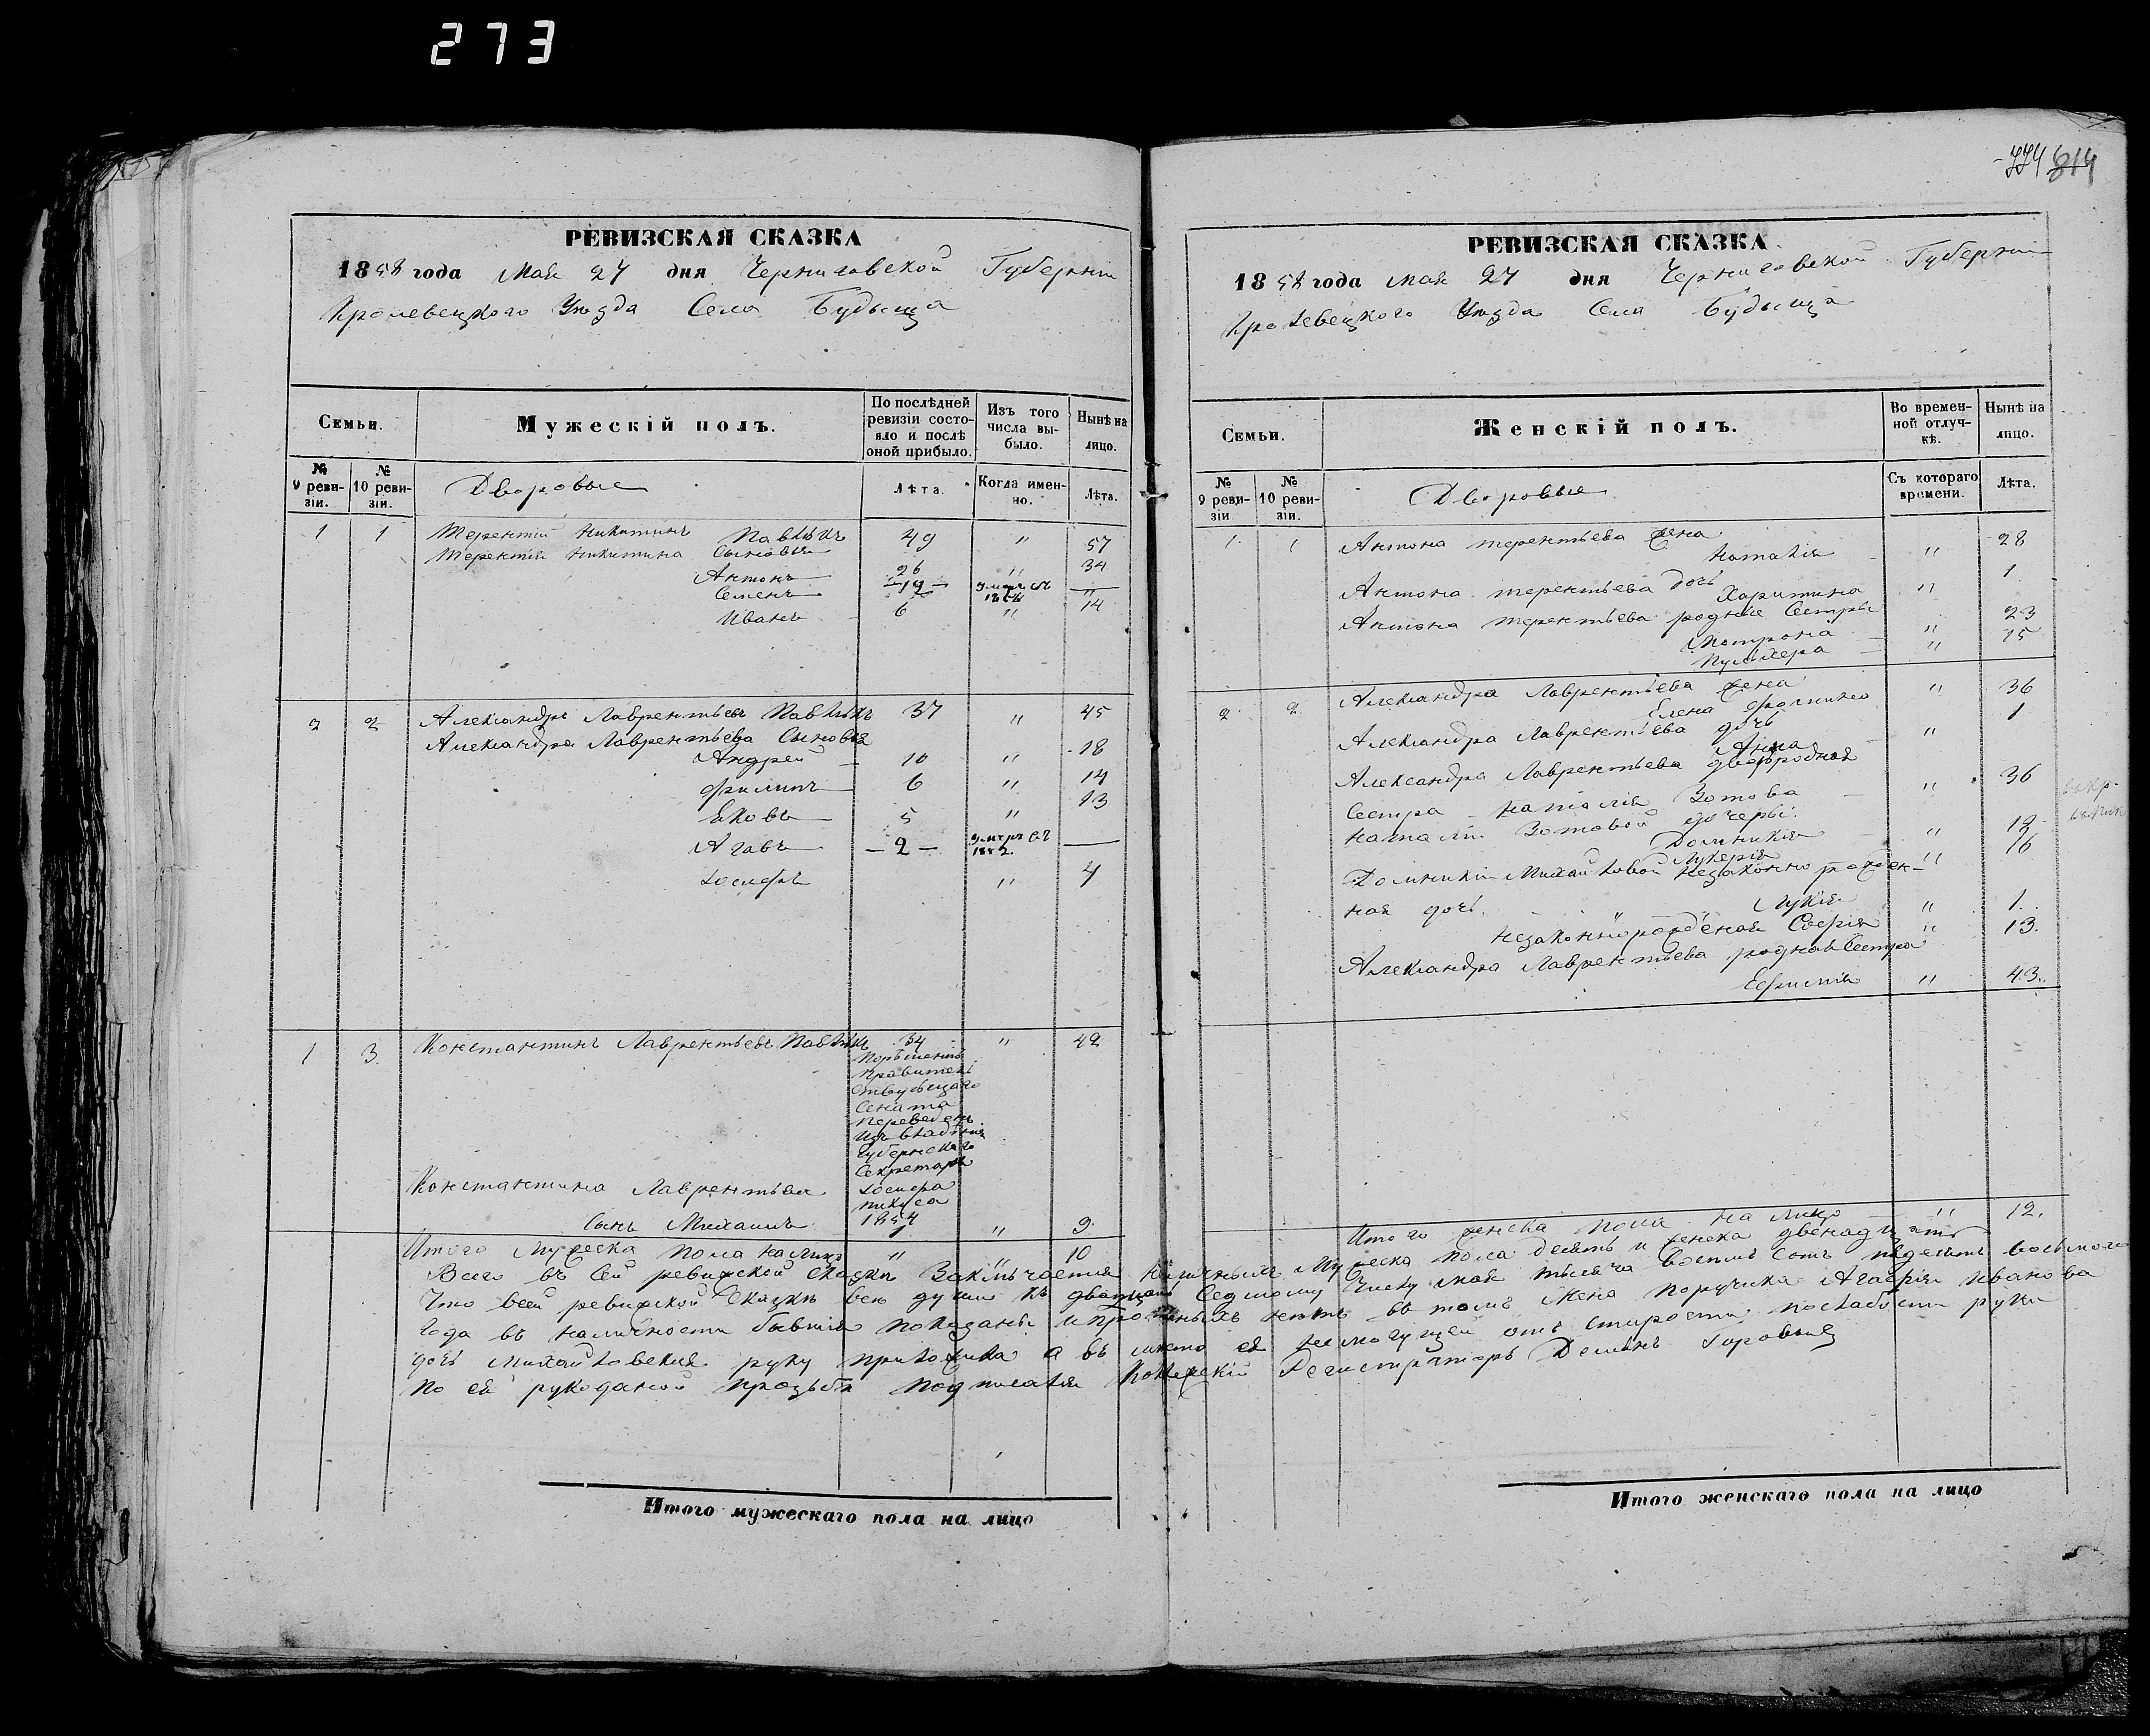 273
774 814
РЕВИЗСКАЯ СКАЗКА
1858 года Мая 27 дня Черниговской Губерніи
Кролевецкого Уѣзда Села Будыща
Семьи.
Мужескій полъ.
По послѣдней ревизіи состояло и послѣ оной прибыло.
Изъ того числа выбыло.
Нынѣ на лицо.
№ 9 ревизіи.
№ 10 ревизіи.
Дворовые
Лѣта.
Когда именно.
Лѣта.
1 1 Терентій Никитинъ Павлѣкъ 49 " 57
Терентія Никитина Сыновья
Антонъ 26 " 34
Семенъ —12— умеръ въ —
Иванъ 6 " 14
2 2 Александръ Лаврентьевъ Павлѣкъ 37 " 45
Александра Лаврентьева Сыновья
Андрей 10 " 18
Филипъ 6 " 14
Яковъ 5 " 13
Агавъ —2— умеръ въ 1852. —
Іосифъ " 4
1 3 Константинъ Лаврентьевъ Павлѣкъ 34 " 42
Порѣшенію
Правитель
ствующаго
Сената
переведенъ
изъ владѣнія
Губернскаго
Секретаря
Константина Лаврентьева Іосифа
1854
Сынъ Михаилъ 1 " 9
Итого Мужеска пола налицо " " 10
РЕВИЗСКАЯ СКАЗКА
1858 года мая 27 дня Черниговской Губерніи
Кролевецкого Уѣзда Села Будыща
Семьи.
Женскій полъ.
Во временной отлучкѣ.
Нынѣ на лицо.
№ 9 ревизіи
№ 10 ревизіи.
Дворовые
Съ котораго времени.
Лѣта.
1 1 Антона терентьева жена
Наталія " 28
Антона терентьева дочь
Харитина " 1
Антона терентьева родные Сестры
Мотрона " 23
Пульхера " 15
2 2 Александра Лаврентьева жена
Елена Фомина " 36
Александра Лаврентьева дочь
Анна " 1
Александра Лаврентьева двоюродная
Сестра Наталія Зотова " 36
Наталіи Зотовой дочери:
Домникія " 19
Лукерія " 16
Домникіи Михайловой незаконно рожден-
ная дочь Лукія " 1.
незаконнорожденая Софія " 13.
Александра Лаврентьева родная Сестра
Ефимія " 43.
Итого женска пола на лицо " 12.
Всего въ Сей ревизской сказкѣ Заключается Наличныхъ Мужеска пола десять и женска двенадцать
Что всей ревизской Сказкѣ все души къ двадцать Седмому Числу мая тысяча восемь сотъ пядесятъ восьмого
года въ наличности бывшія показаны и прописныхъ нѣтъ въ томъ Жена Поручика Агафія Иванова
дочь Михайловская руку приложила а въ мѣсто ея немогущей отъ старости послабости руки
по ея рукоданой прозьбѣ подписался Колежскій Регистраторъ Демянъ
Итого мужескаго пола на лицо
Итого женскаго пола на лицо